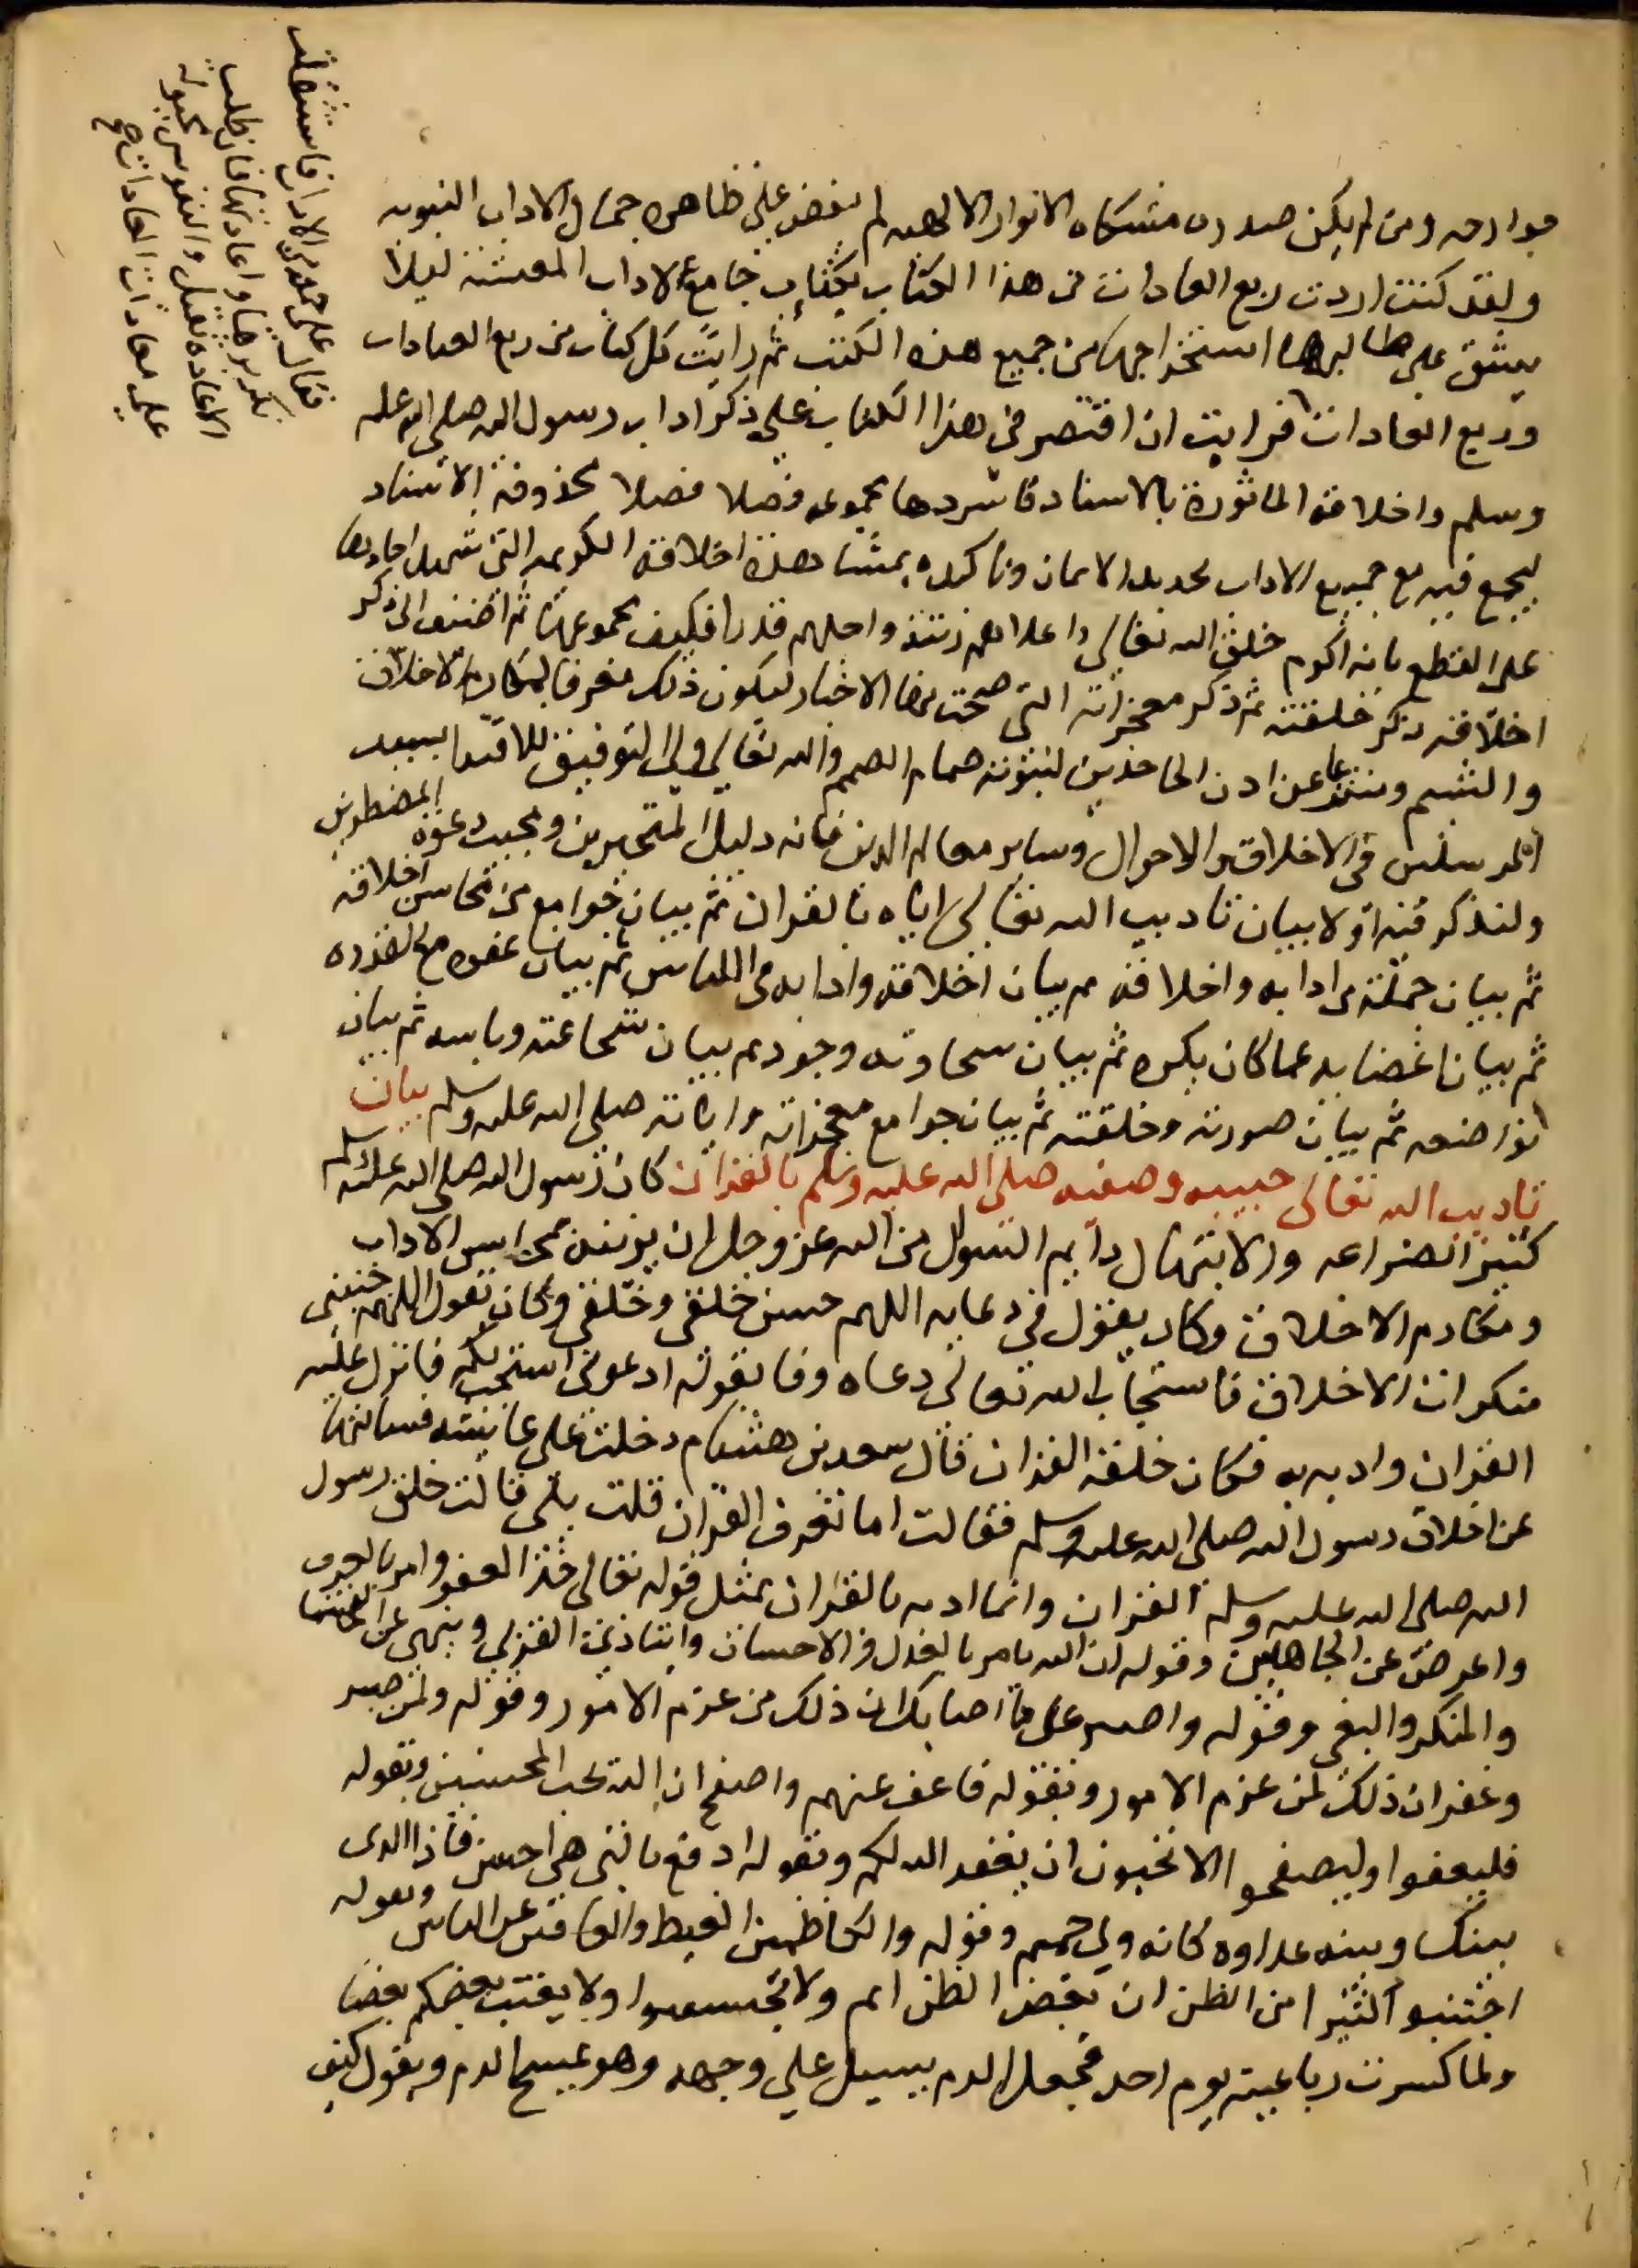 جوارحه ومن لم يكن صدره مشكاه الانوار الالهيه لم يفض علي ظاهره جمال الاداب النبويه
ولقد كنت اردت ربع العادات من هذا الكتاب بكتاب جامع لاداب المعيشة ليلا
يشق علي طالبها استخراجها من جميع هذه الكتب ثم رايت كل كتاب من ربع العبادات
وربع العادات فرايت ان اقتصر في هذا الكتاب علي ذكر اداب رسول الله صلي الله عليه
وسلم واخلاقه الماثورة بالاسناد فاسردها مجموعه فصلا فصلا محذوفة الاسناد
ليجمع فيه مع جميع الاداب تجديد الايمان وتاكيده بمشاهدة اخلاقه الكريمه التي شهد احادها
على القطع بانه اكرم خلق الله تعالي واعلاهم رتبة واجلهم قدرا فكيف مجموعها ثم اضفت الى ذكر
اخلاقه ذكر خلقته ثم ذكر معجزاته التي صحت بها الاخبار ليكون ذلك معرفا لمكارم الاخلاق
والشيم ومنتزعا عن اذن الجاحدين لنبوته صمام الصمم والله تعالي ولي التوفيق للاقتدا بسيد
المرسلين في الاخلاق والاحوال وساير معالم الدين فانه دليل المتحيرين ومجيب دعوة المضطرين
ولنذكر فيه اولا بيان تاديب الله تعالى اياه بالقران ثم بيان جوامع من محاسن اخلاقه
ثم بيان جملة من ادابه واخلاقه ثم بيان اخلاقه وادابه في اللباس ثم بيان عفوه مع القدره
ثم بيان اغضايه عما كان يكره ثم بيان سخاوته وجوده ثم بيان شجاعته وباسه ثم بيان
تواضعه ثم بيان صورته وخلقته ثم بيان جوامع معجزاته واياته صلى الله عليه وسلم بيان
تاديب الله تعالى حبيبه وصفيه صلى الله عليه وسلم بالقران كان رسول الله صلى الله عليه وسلم
كثير الضراعه والابتهال دايم السوال من الله عز وجل ان يزينه بمحاسن الاداب
ومكارم الاخلاق وكان يقول في دعايه اللهم حسن خلقي وخلقي وكان يقول اللهم جنبني
منكرات الاخلاق فاستجاب الله تعالى دعاه وفا بقوله ادعوني استجب لكم فانزل عليه
القران وادبه به فكان خلقه القران قال سعد بن هشام دخلت علي عايشه فسالتها
عن اخلاق رسول الله صلى الله عليه وسلم فقالت اما تقرا القران قلت بلى قالت خلق رسول
الله صلى الله عليه وسلم القران وانما ادبه بالقران بمثل قوله تعالى خذ العفو وامر بالعرف
واعرض عن الجاهلين وقوله ان الله يامر بالعدل والاحسان وايتا ذي القربي وينهى عن الفحشا
والمنكر والبغي وقوله واصبر على ما اصابك ان ذلك من عزم الامور وقوله ولمن صبر
وغفر ان ذلك لمن عزم الامور وبقوله فاعف عنهم واصفح ان الله يحب المحسنين وبقوله
فليعفوا وليصفحوا الا تحبون ان يغفر الله لكم وبقوله ادفع بالتي هي احسن فاذا الذى
بينك وبينه عداوه كانه ولي حميم وقوله والكاظمين الغيظ والعافين عن الناس وبقوله
اجتنبو كثيرا من الظن ان بعض الظن اثم ولا تجسسوا ولا يغتب بعضكم بعضا
ولما كسرت رباعيته يوم احد فجعل الدم يسيل علي وجهه وهو يمسح الدم ويقول كيف
فاستثقلت
على معادات المعادات صح